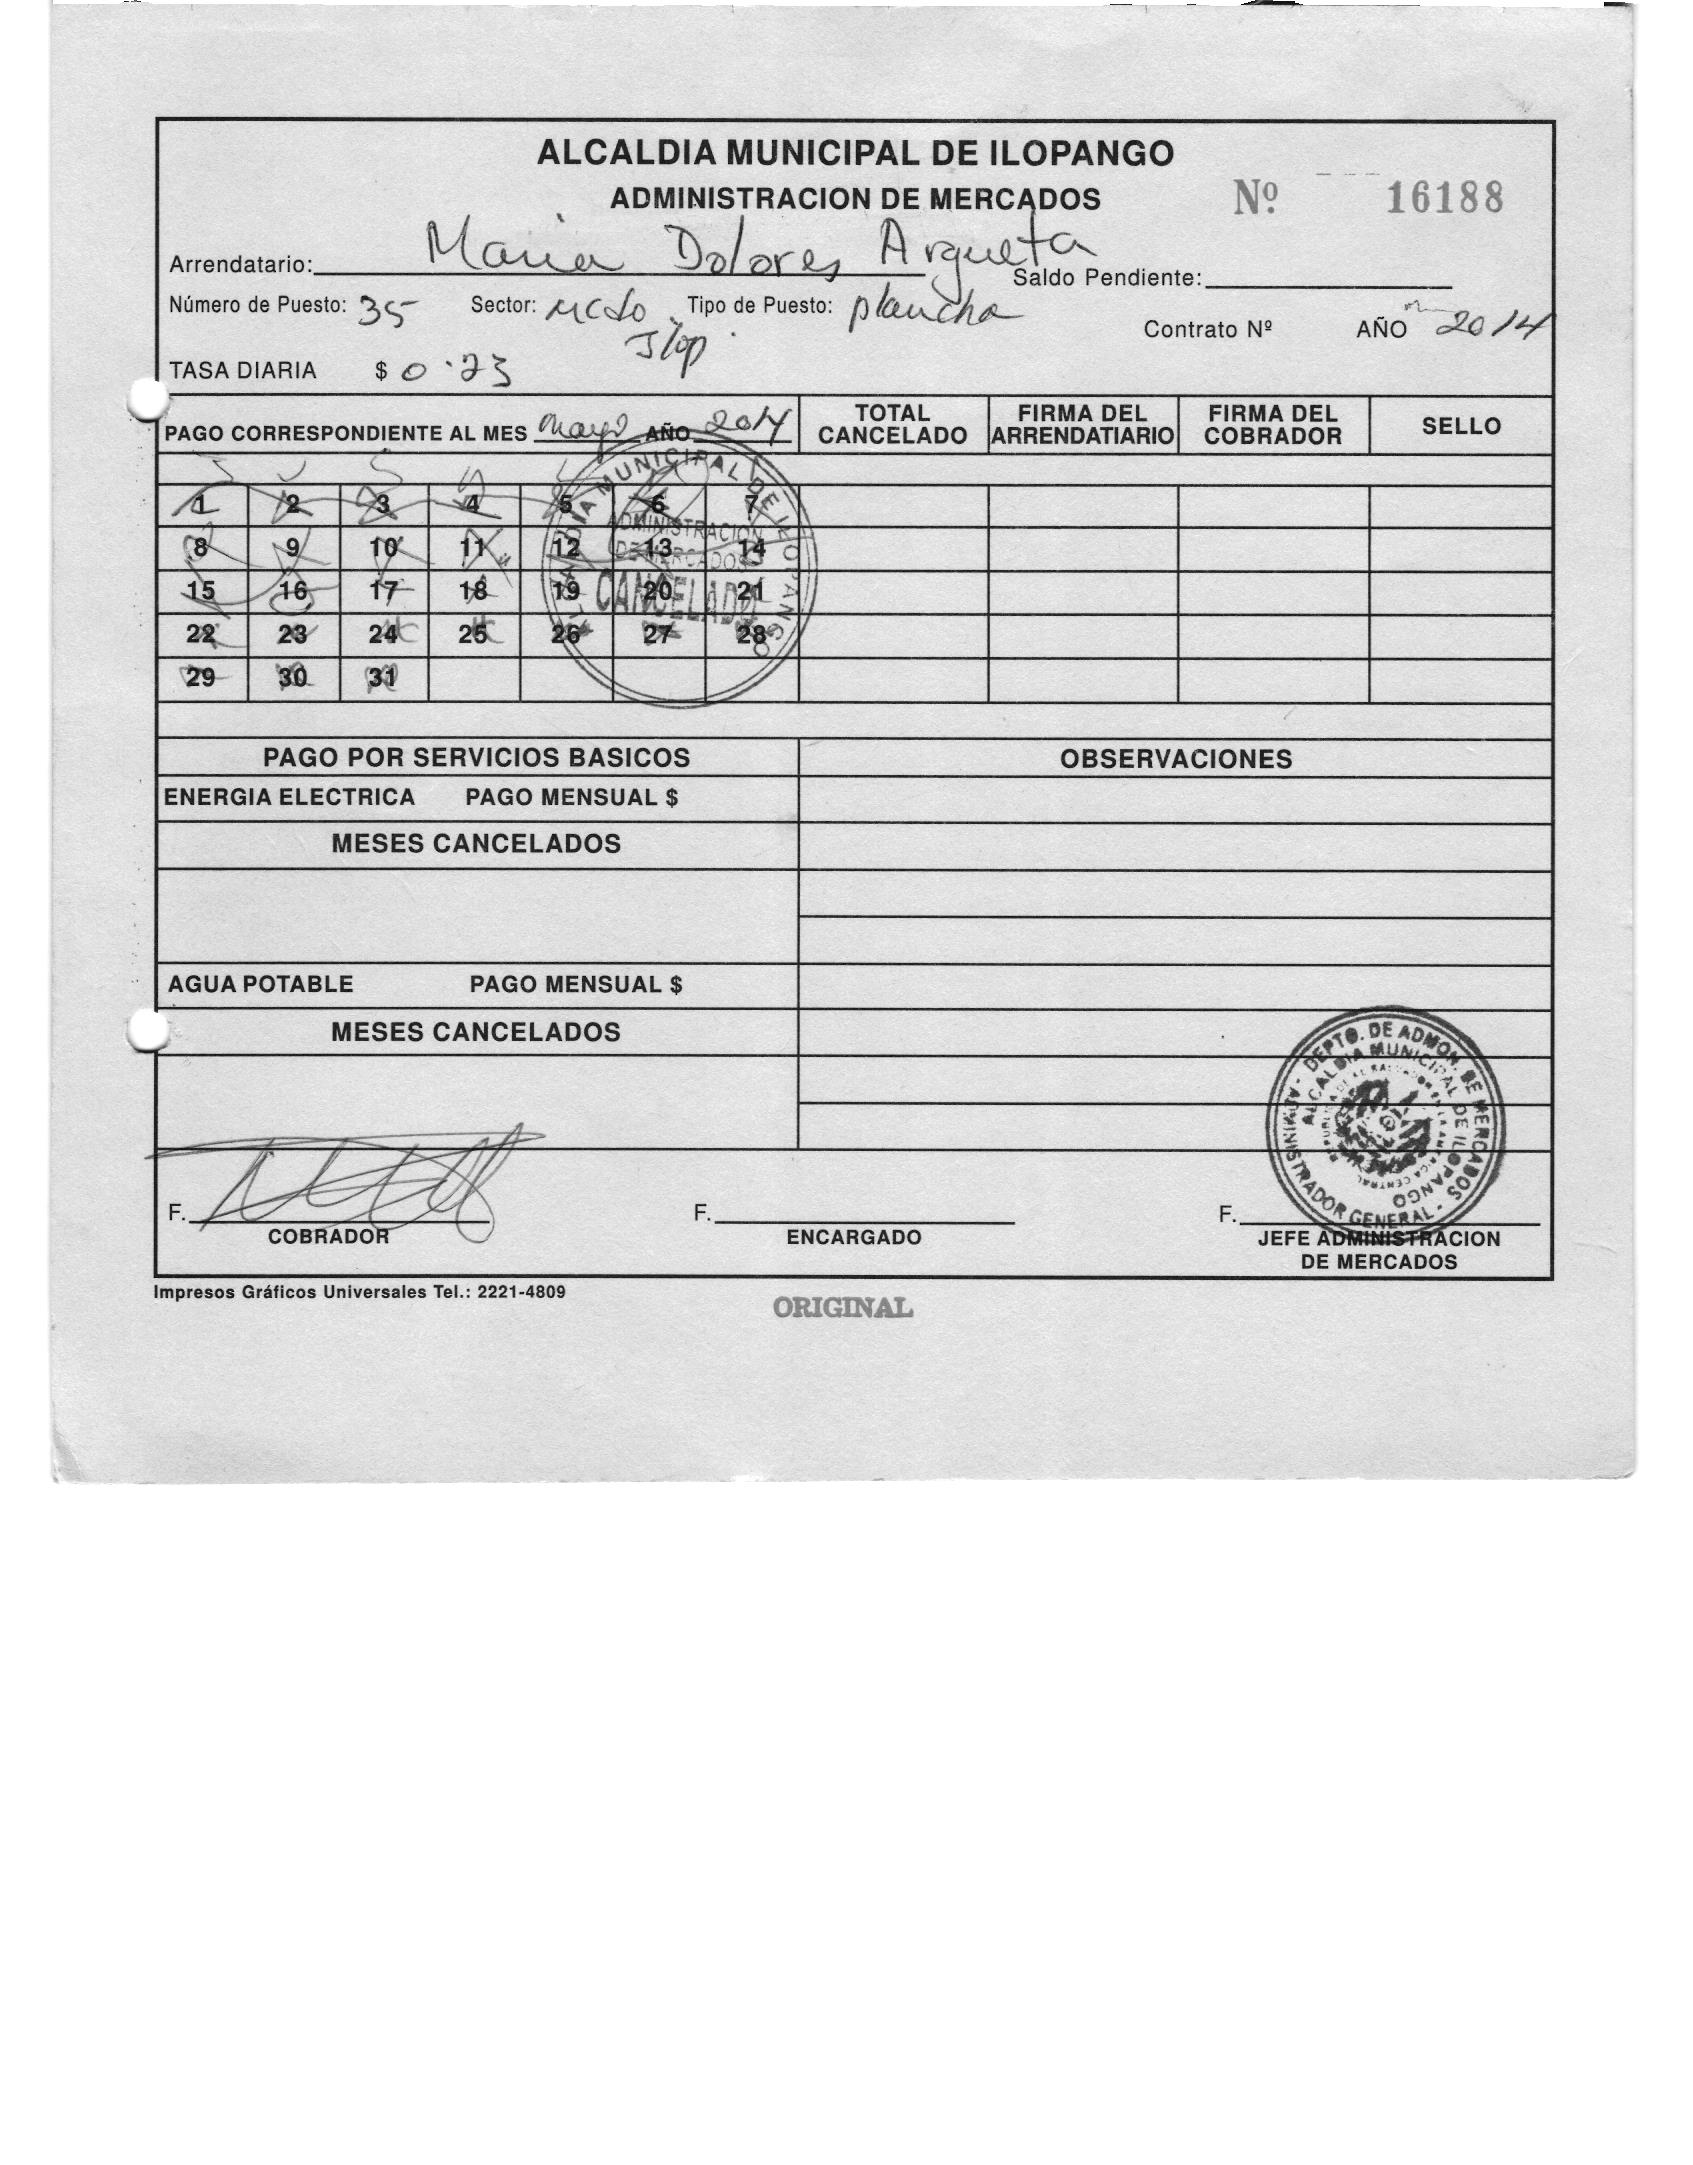 ALCALDIA MUNICIPAL DE ILOPANGO
ADMINISTRACION DE MERCADOS
Nº 16188
Arrendatario: Maria Dolores Argueta
Saldo Pendiente:
Número de Puesto: 35 Sector: Mcdo Ilop. Tipo de Puesto: plancha
Contrato Nº AÑO 2014
TASA DIARIA $ 0.23
PAGO CORRESPONDIENTE AL MES mayo AÑO 2014
TOTAL CANCELADO
FIRMA DEL ARRENDATIARIO
FIRMA DEL COBRADOR
SELLO
1 2 3 4 5 6 7
8 9 10 11 12 13 14
15 16 17 18 19 20 21
22 23 24 25 26 27 28
29 30 31
ALCALDIA MUNICIPAL DE ILOPANGO
ADMINISTRACION
DE MERCADOS
CANCELADO
PAGO POR SERVICIOS BASICOS OBSERVACIONES
ENERGIA ELECTRICA PAGO MENSUAL $
MESES CANCELADOS
AGUA POTABLE PAGO MENSUAL $
MESES CANCELADOS
ADMINISTRADOR GENERAL - DEPTO. DE ADMON. DE MERCADOS -
ALCALDIA MUNICIPAL DE ILOPANGO
F. COBRADOR
F. ENCARGADO
F. JEFE ADMINISTRACION
DE MERCADOS
Impresos Gráficos Universales Tel.: 2221-4809
ORIGINAL